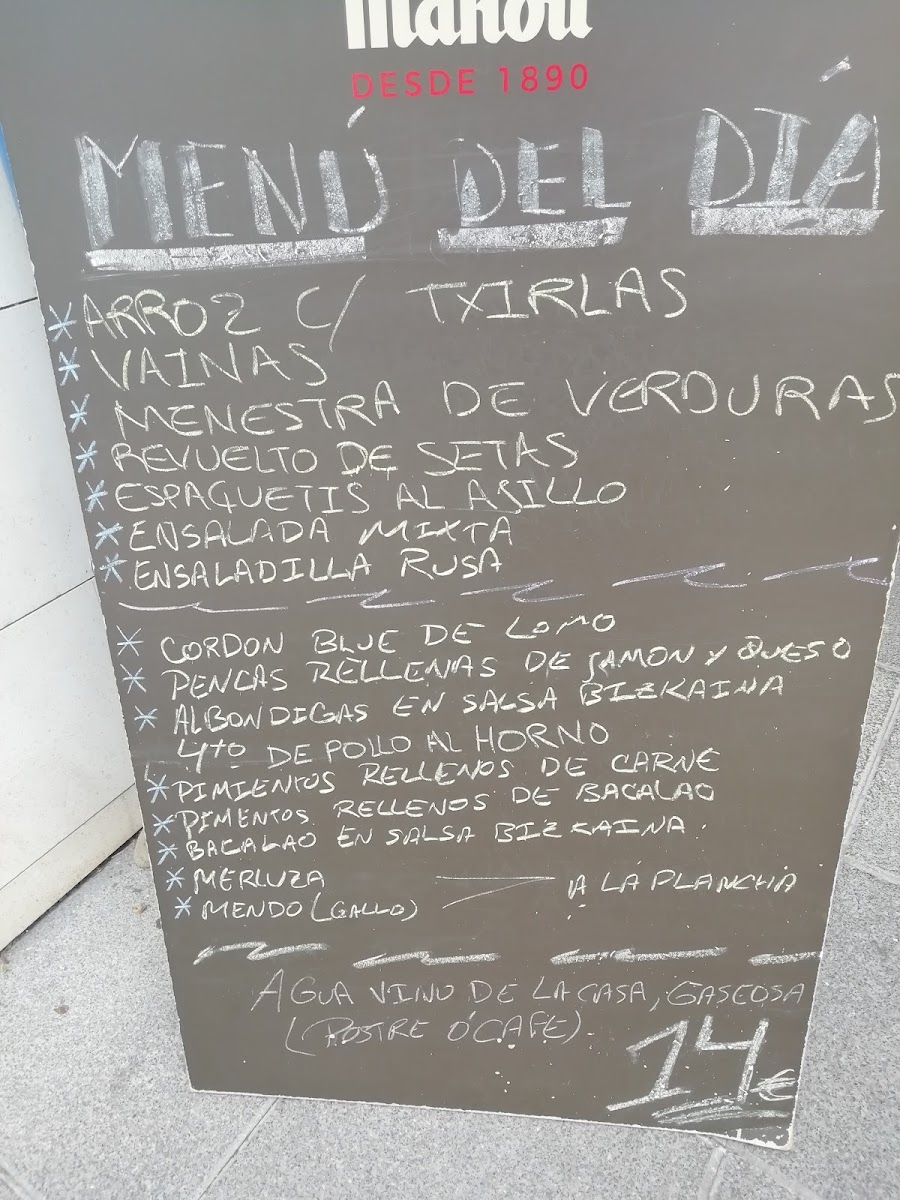 mahou
DESDE 1890
MENÚ DEL DÍA
* ARROZ C/ TXIRLAS
* VAINAS
* MENESTRA DE VERDURAS
* REVUELTO DE SETAS
* ESPAGUETIS AL AJILLO
* ENSALADA MIXTA
* ENSALADILLA RUSA
* CORDON BLUE DE LOMO
* PENCAS RELLENAS DE JAMON Y QUESO
* ALBONDIGAS EN SALSA BIZKAINA
4to DE POLLO AL HORNO
* PIMIENTOS RELLENOS DE CARNE
* PIMENTOS RELLENOS DE BACALAO
* BACALAO EN SALSA BIZKAINA.
* MERLUZA A LA PLANCHA
* MENDO (GALLO)
AGUA VINO DE LA CASA, GASEOSA
(POSTRE O CAFE).
14€